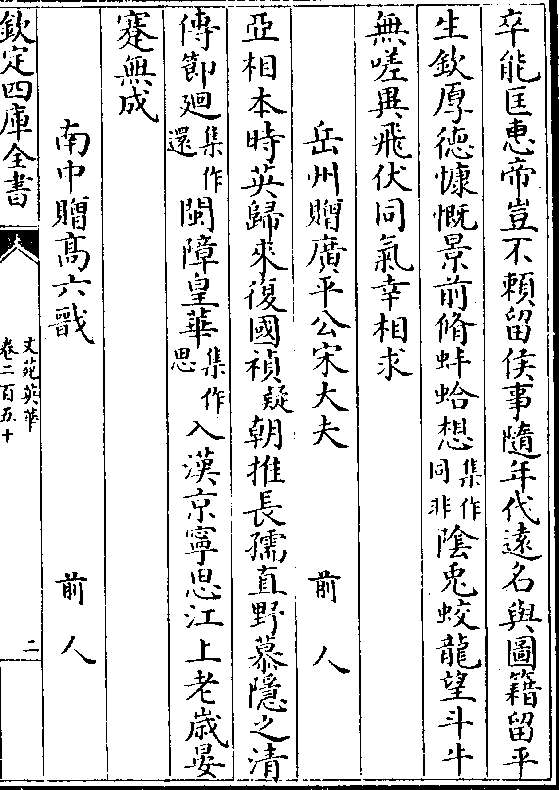 卒能匡惠帝豈不賴留侯事隨年代遠名與圖籍留平
生欽厚德慷慨景前脩蚌蛤想集作同非陰兎蛟龍望斗牛
無嗟異飛伏同氣幸相求
岳州贈廣平公宋大夫 前人
亞相本時英歸來復國禎疑朝推長孺直野慕隱之清
傳節廻集作還閩障皇華集作思入漢京寧思江上老歳晏
蹇無成
南中贈髙六戩 前人
欽定四庫全書
文苑英華
卷二百五十
二